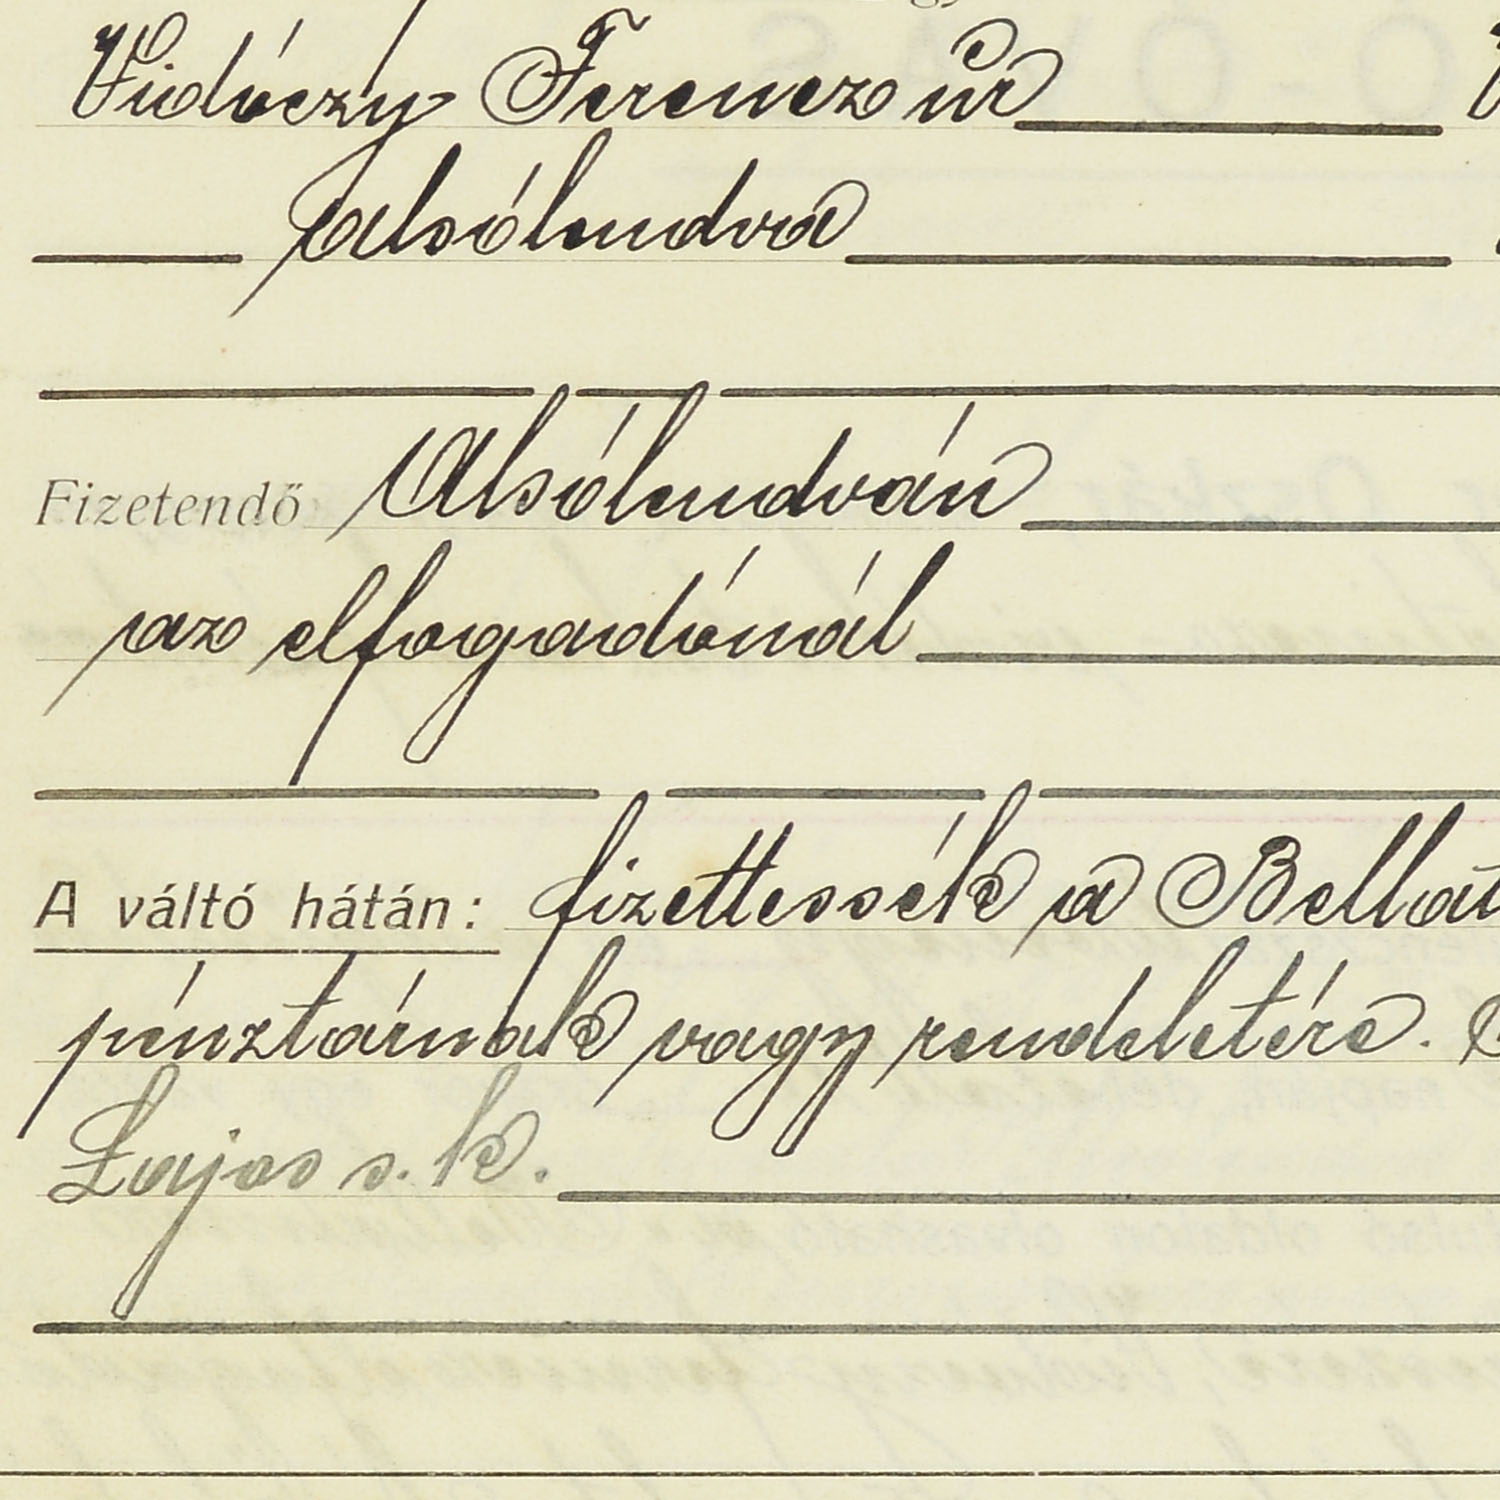 Vidóczy Ferencz úr
Alsólendva
Fizetendő Alsólendván
az elfogadónál
A váltó hátán: fizettessék a Bellat
pénztárnak vagy rendeletére.
Lajos s. k.